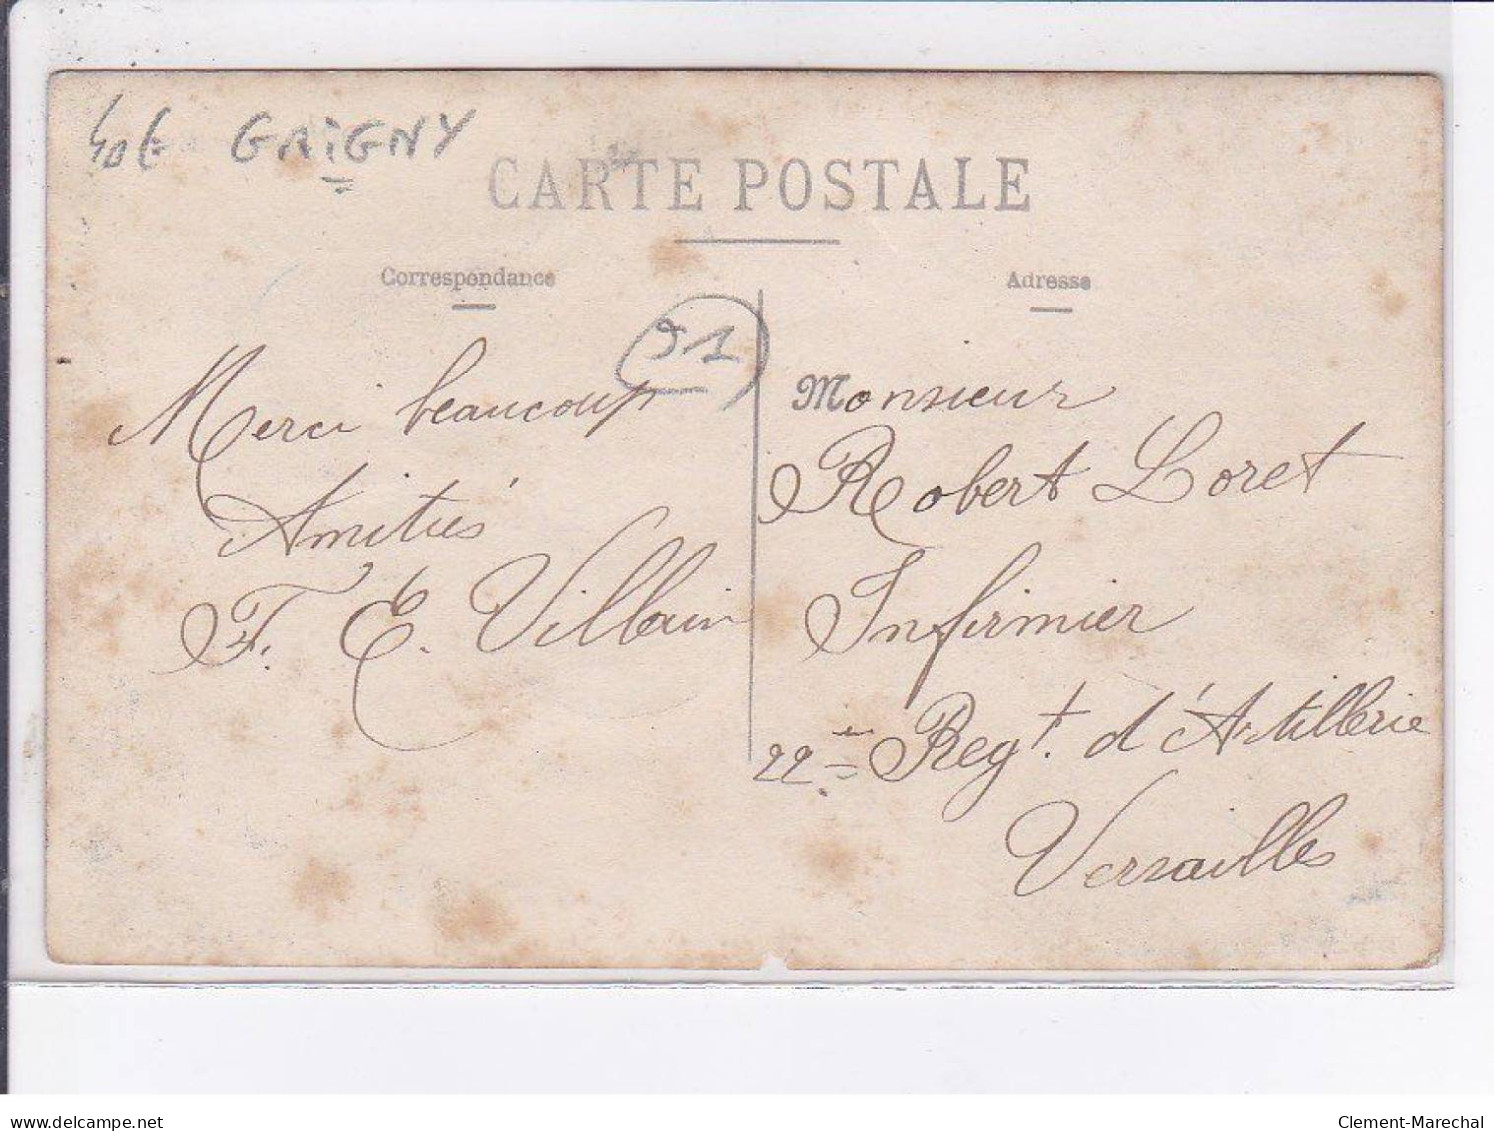 40€ GRIGNY
CARTE POSTALE
Correspondance
Adresse
91
Merci beaucoup
Amitiés
F. E. Villain
Monsieur
Robert Loret
Infirmier
22è Regt. d'Artillerie
Versailles
www.delcampe.net
Clement-Marechal